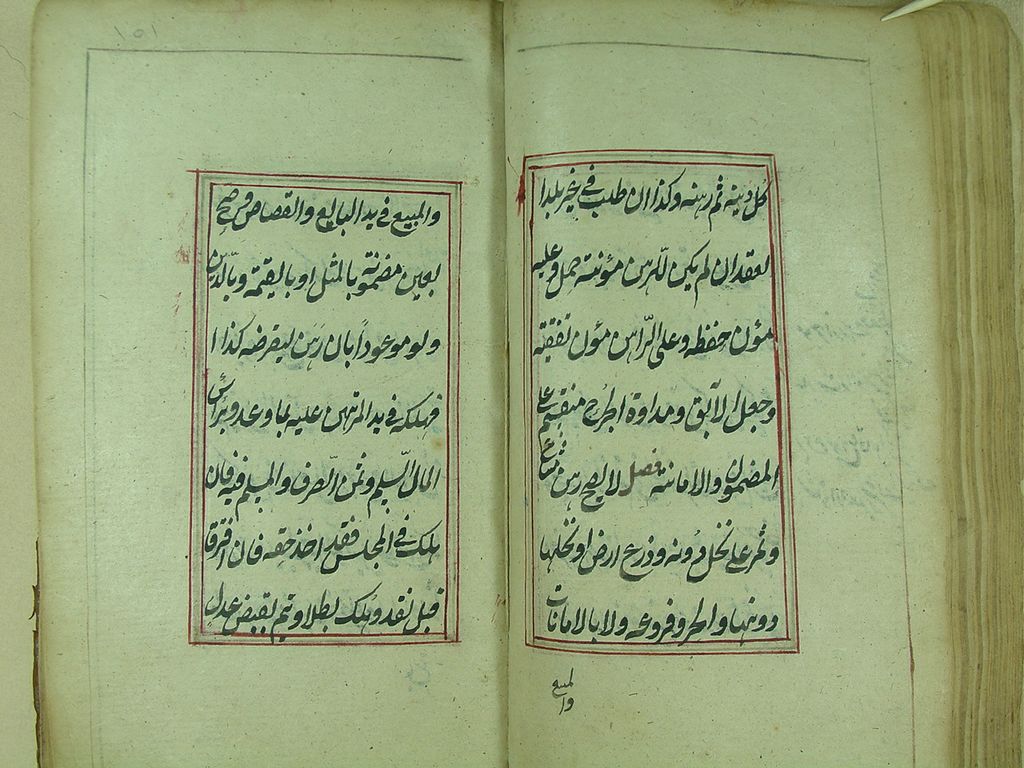 كل دينه ثم رهنه وكذا ان طلب في غير بلدا
لعقد ان لم يكن للرهن مؤنة حمل وعليه
مؤن حفظه وعلى الراهن مؤن نفقته
وجعل الآبق ومداوة الجرح منقسم على
المضمون والامانة فصل لا يصح رهن مشاع
وثمر على نخل دونه وذرع ارض او نخلها
دونها والحر وفروعه ولا بالامانات
والمبيع
والمبيع في يد البايع والقصاص وصح
بعين مضمونة بالمثل او بالقيمة وبالدين
ولو موعودا بان رهن ليقرضه كذا ا
فهلكه في يد المرتهن عليه بما وعد وبرأس
المال السلم وثمن الصرف والمسلم فيه فان
هلك في المجلس فقد اخذ حقه فان افترقا
قبل نقد وهلك بطلا وتم بقبض عدل
١٥١